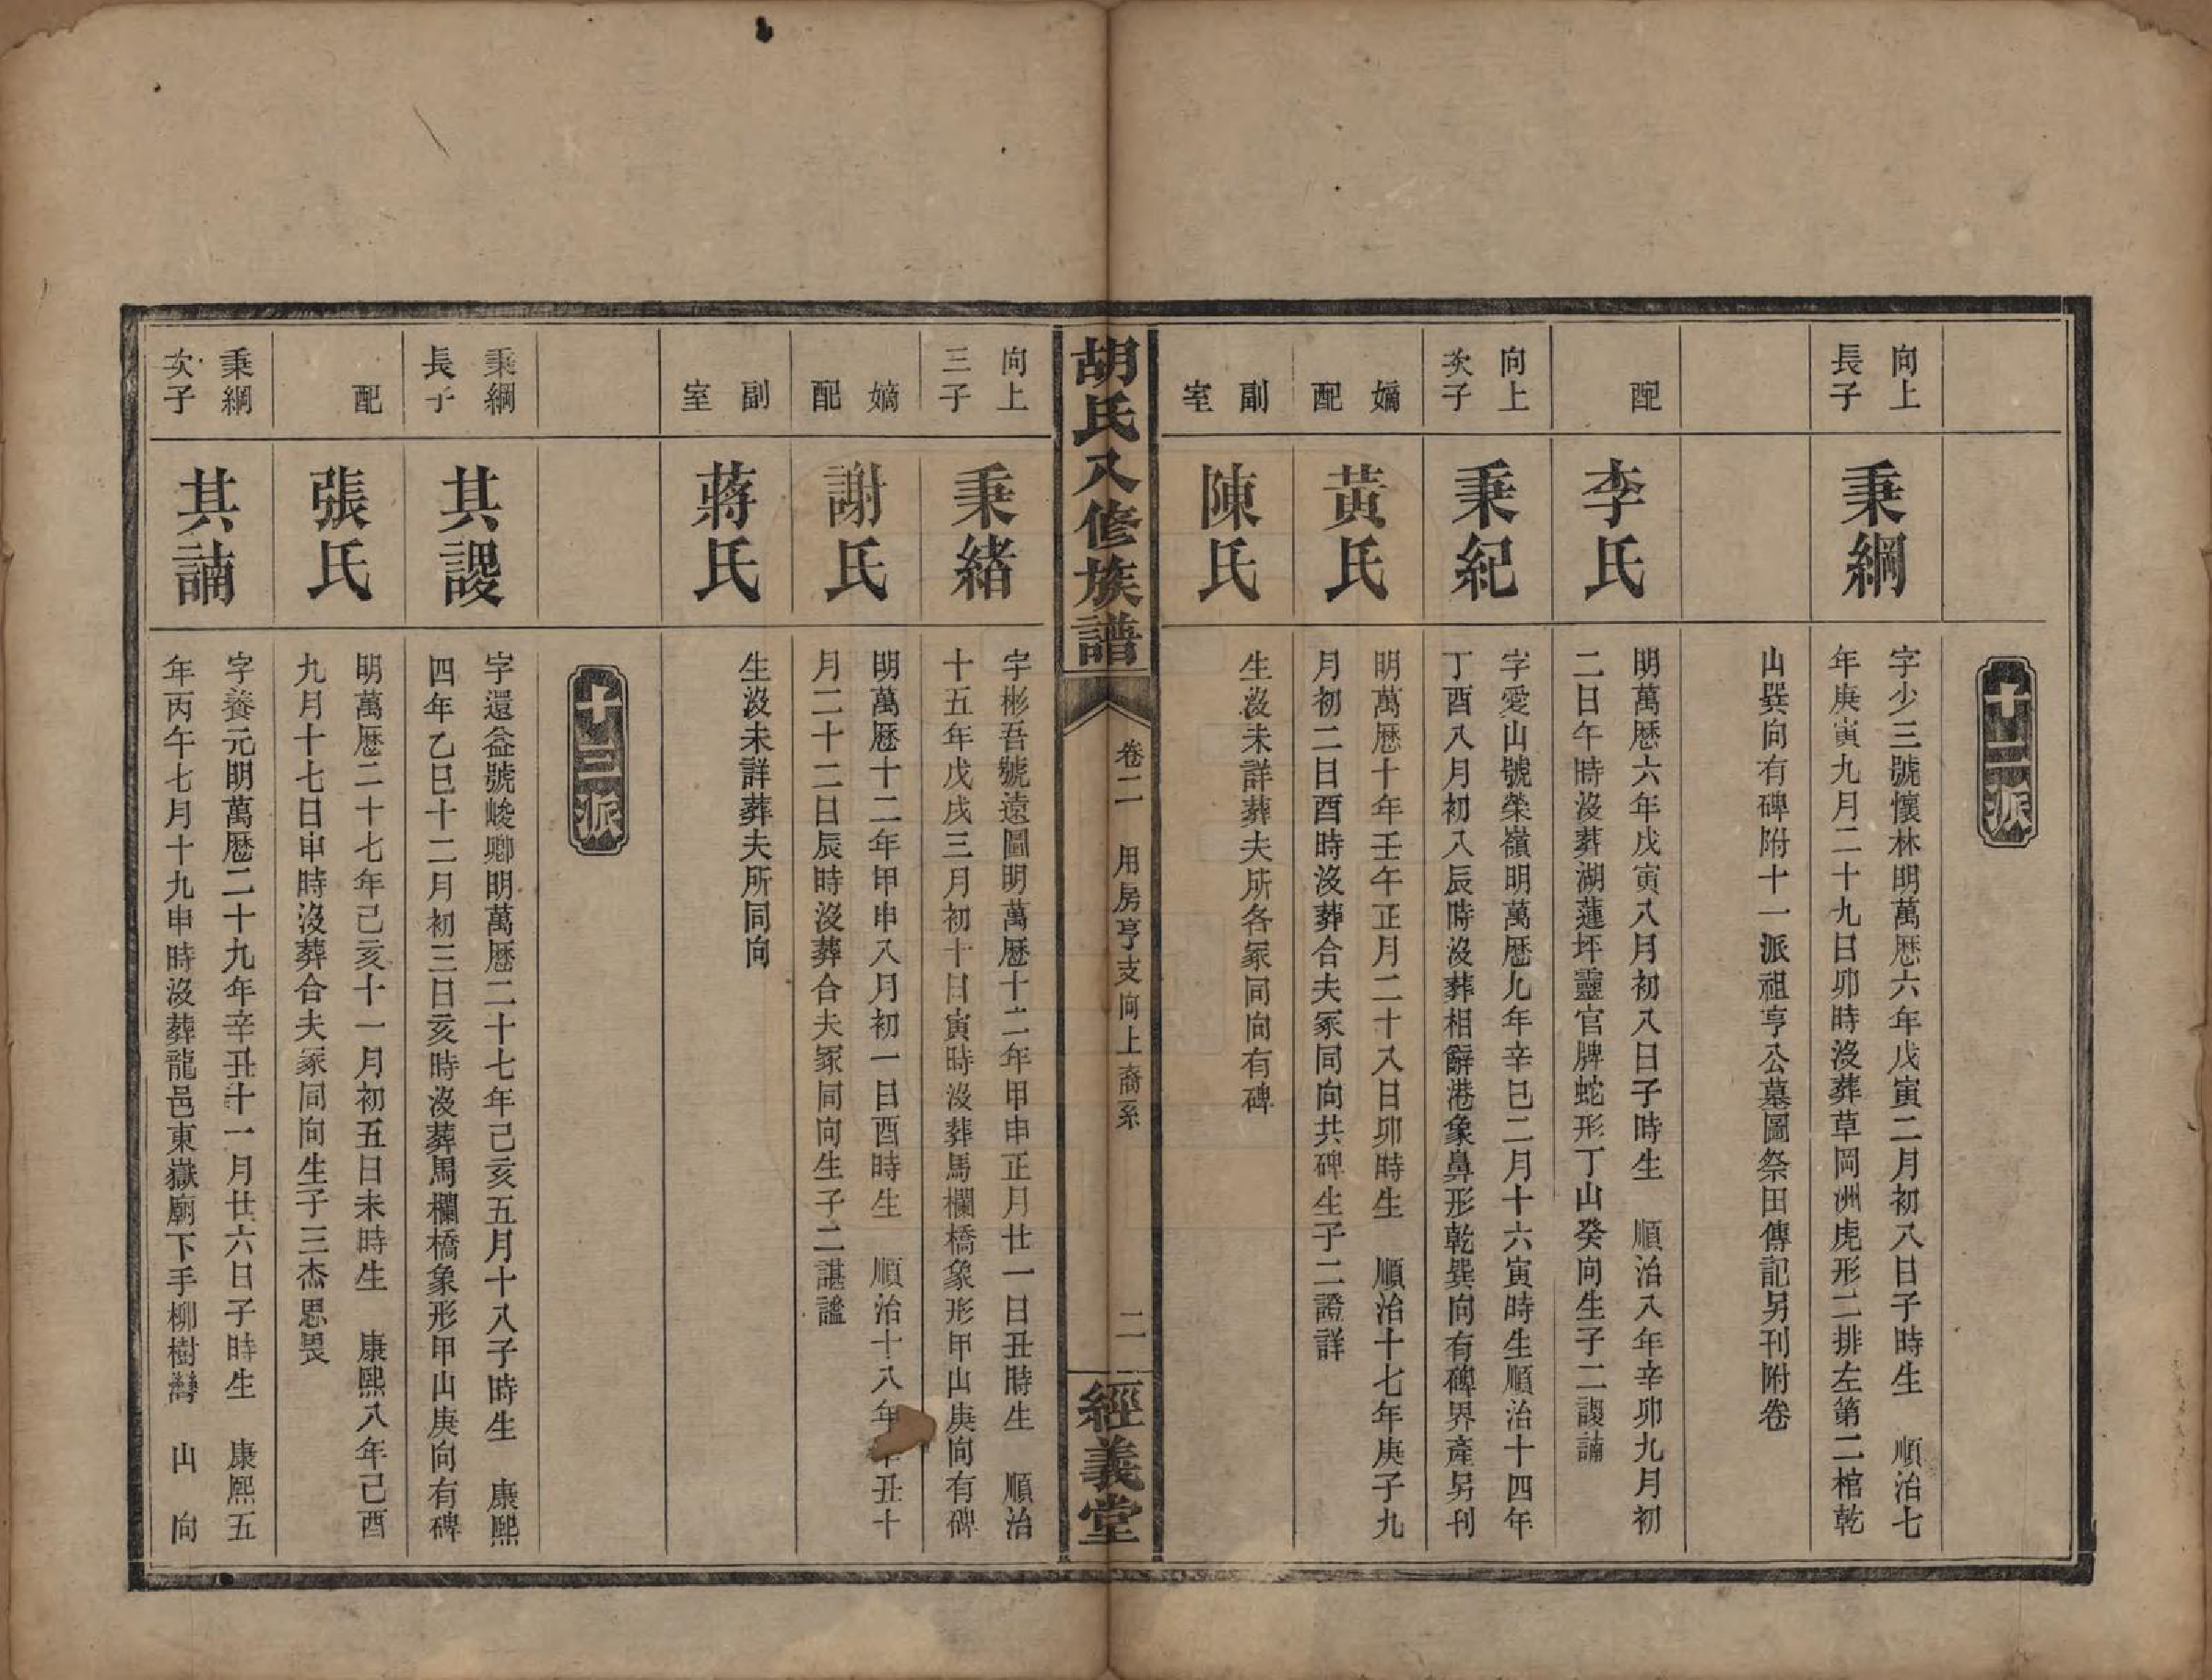 十二派
向上
長子
秉綱
字少三號懷林明萬歷六年戊寅二月初八日子時生　順治七
年庚寅九月二十九日卯時沒葬草岡洲虎形二排左第二棺乾
山巽向有碑附十一派祖亨公墓圖祭田傳記另刊附卷
配
李氏
明萬歷六年戊寅八月初八日子時生　順治八年辛卯九月初
二日午時沒葬湖蓮坪靈官牌蛇形丁山癸向生子二謖諵
向上
次子
秉紀
字愛山號榮嶺明萬歷九年辛巳二月十六寅時生順治十四年
丁酉八月初八辰時沒葬相辭港象鼻形乾巽向有碑界產另刊
嫡
配
黃氏
明萬歷十年壬午正月二十八日卯時生　順治十七年庚子九
月初二日酉時沒葬合夫冢同向共碑生子二證詳
副
室
陳氏
生沒未詳葬夫所各冢同向有碑
胡氏八修族譜
卷二　用房亨支向上裔系
二
經義堂
向上
三子
秉緒
字彬吾號遠圖明萬歷十二年甲申正月廿一日丑時生　順治
十五年戊戌三月初十日寅時沒葬馬欄橋象形甲山庚向有碑
嫡
配
謝氏
明萬歷十二年甲申八月初一日酉時生　順治十八年丑十
月二十二日辰時沒葬合夫冢同向生子二諶謐
副
室
蔣氏
生沒未詳葬夫所同向
十三派
秉綱
長子
其謖
字還益號峻卿明萬歷二十七年己亥五月十八子時生　康熙
四年乙巳十二月初三日亥時沒葬馬欄橋象形甲山庚向有碑
配
張氏
明萬歷二十七年己亥十一月初五日未時生　康熙八年己酉
九月十七日申時沒葬合夫冢同向生子三杰思畏
秉綱
次子
其諵
字養元明萬歷二十九年辛丑十一月廿六日子時生　康熙五
年丙午七月十九申時沒葬龍邑東嶽廟下手柳樹灣　山　向